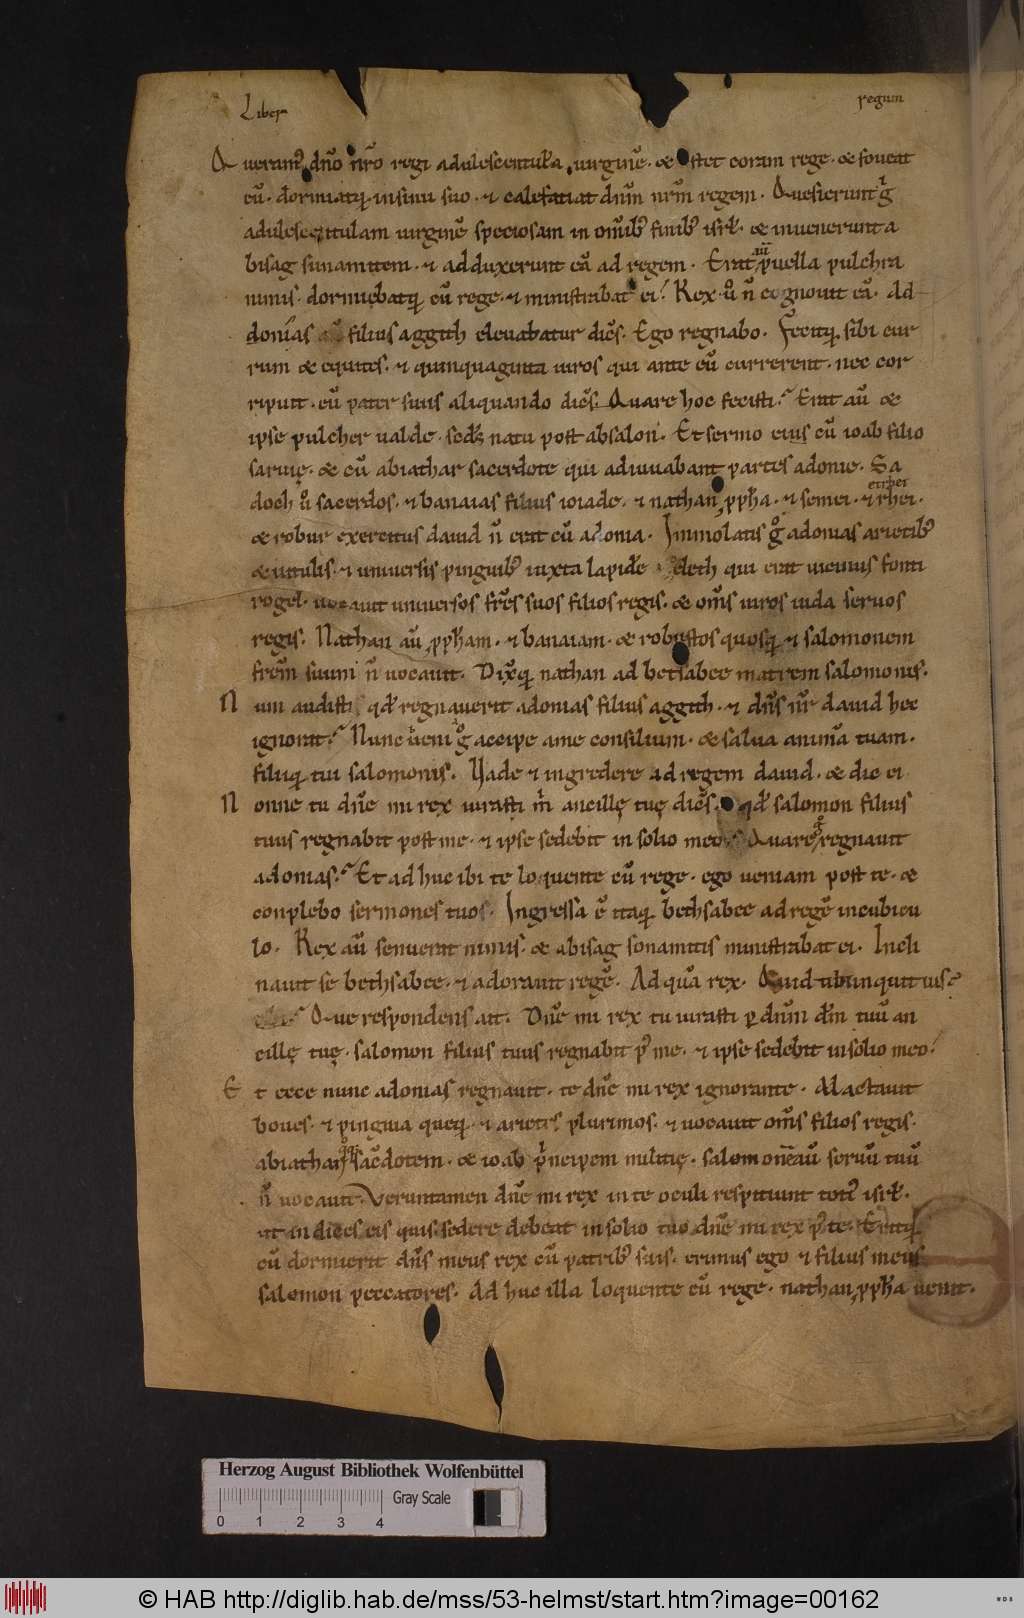 Liber regum
Querant᷒ dño nr̃o regi adulescentulã uirginẽ. & stet coram rege. & foueat
eũ. dormiatq; insinu suo. & calefaciat dñm nr̃m regem. Quesierunt gͦ
adulescentulam uirginẽ speciosam in omĩbꝰ finibꝰ isr̃l. & inuenerunt a
bisag sunamitem. & adduxerunt eã ad regem. Erat aũ puella pulchra
nimis. dormiebatq; cũ rege. & ministrabat ei. Rex uͦ ñ cognouit eã. Ad
donias filius aggith eleuabatur dicẽs. Ego regnabo. Fecitq; sibi cur
rum & equites. & quinquaginta uiros qui ante eũ currerent. nec cor
ripuit eũ pater suus aliquando dicẽs. Quare hoc fecisti. Erat aũ &
ipse pulcher ualde. sed natu post absalon. Et sermo eius cũ ioab filio
saruię. & cũ abiathar sacerdote qui adiuuabant partes adonie. Sa
doch uͦ sacerdos. & banaias filius ioiade. & nathan ꝓph̃a. & semei. & rhei.
& robur exercitus dauid ñ erat cũ adonia. Immolatis gͦ adonias arietibꝰ
& uitulis. & uniuersis pinguibꝰ iuxta lapidẽ zeleth qui erat uicinus fonti
rogel. uocauit uniuersos fr̃es suos filios regis. & om̃s uiros iuda seruos
regis. Nathan aũ ꝓph̃am. & banaiam. & robustos quosq; & salomonem
frẽm suum ñ uocauit. Dix̃q; nathan ad betsabee matrem salomonis.
Num audisti qđ regnauerit adonias filius aggith. & dñs nr̃ dauid hec
ignorat. Nunc ueni gͦ accipe ame consilium. & salua animã tuam.
filiiq; tui salomonis. Uade & ingredere ad regem dauid. & dic ei
Nonne tu dñe mi rex iurasti m̃ ancillę tuę dicẽs. qđ salomon filius
tuus regnabit post me. & ipse sedebit in solio meo. Quare gͦ regnauit
adonias. Et adhuc ibi te loquente cũ rege. ego ueniam post te. &
conplebo sermones tuos. Ingressa ẽ itaq; bethsabee ad regẽ incubicu
lo. Rex aũ senuerat nimis. & abisag sonamitis ministrabat ei. Incli
nauit se bethsabee. & adorauit regẽ. Ad quã rex. Quid tibi inquit uis
Que respondens ait. Dñe mi rex tu iurasti ꝑ dñm dm̃ tuũ an
cillę tuę. salomon filius tuus regnabit p᷒ me. & ipse sedebit insolio meo.
Et ecce nunc adonias regnauit. te dñe mi rex ignorante. Mactauit
boues. & pinguia queq;. & arietes plurimos. & uocauit om̃s filios regis.
abiathar qͦq; sac̃dotem. & ioab pͥncipem militię. salomonẽ aũ seruũ tuũ
ñ uocauit. Veruntamen dñe mi rex in te oculi respitiunt toti᷒ isr̃l.
ut indices eis quis sedere debeat insolio tuo dñe mi rex p᷒ te. Eritq;
cũ dormierit dñs meus rex cũ patribꝰ suis. erimus ego & filius meus
salomon peccatores. Adhuc illa loquente cũ rege. nathan ꝓph̃a uenit.
Herzog August Bibliothek Wolfenbüttel
Gray Scale
0 1 2 3 4
© HAB http://diglib.hab.de/mss/53-helmst/start.htm?image=00162